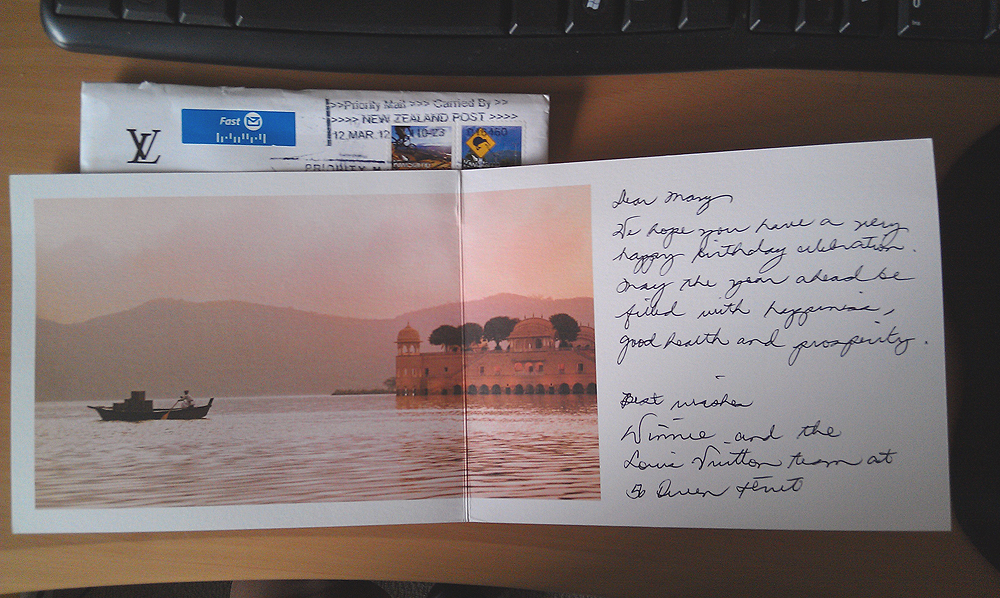 Fast
>>Priority Mail >>> Carried By >>
>>>>> NEW ZEALAND POST >>>>
12 MAR 12
016460
PRIORITY
LV
Dear Mary
We hope you have a very
happy birthday celebration.
May the year ahead be
filled with happiness,
good health and prosperity.
Best wishes
Winnie and the
Louis Vuitton team at
56 Queen Street